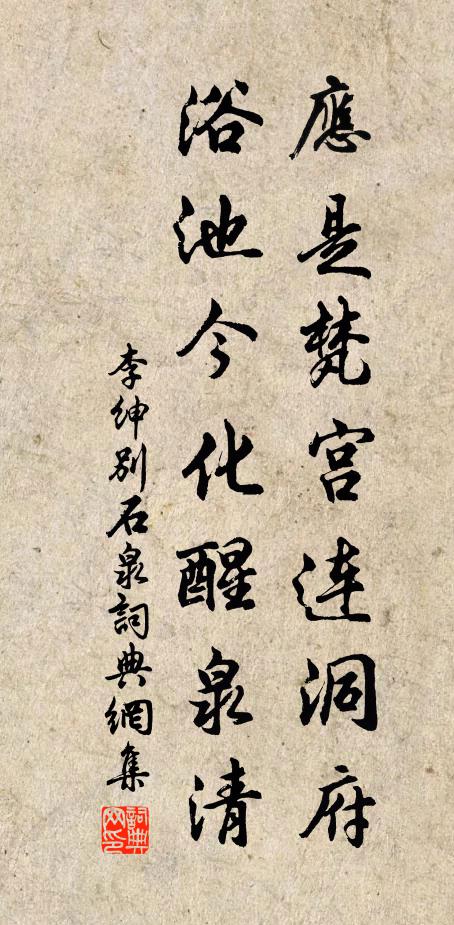 應是梵宮連洞府
浴池今化醒泉清
李紳別石泉詞典網集
詞典
网印